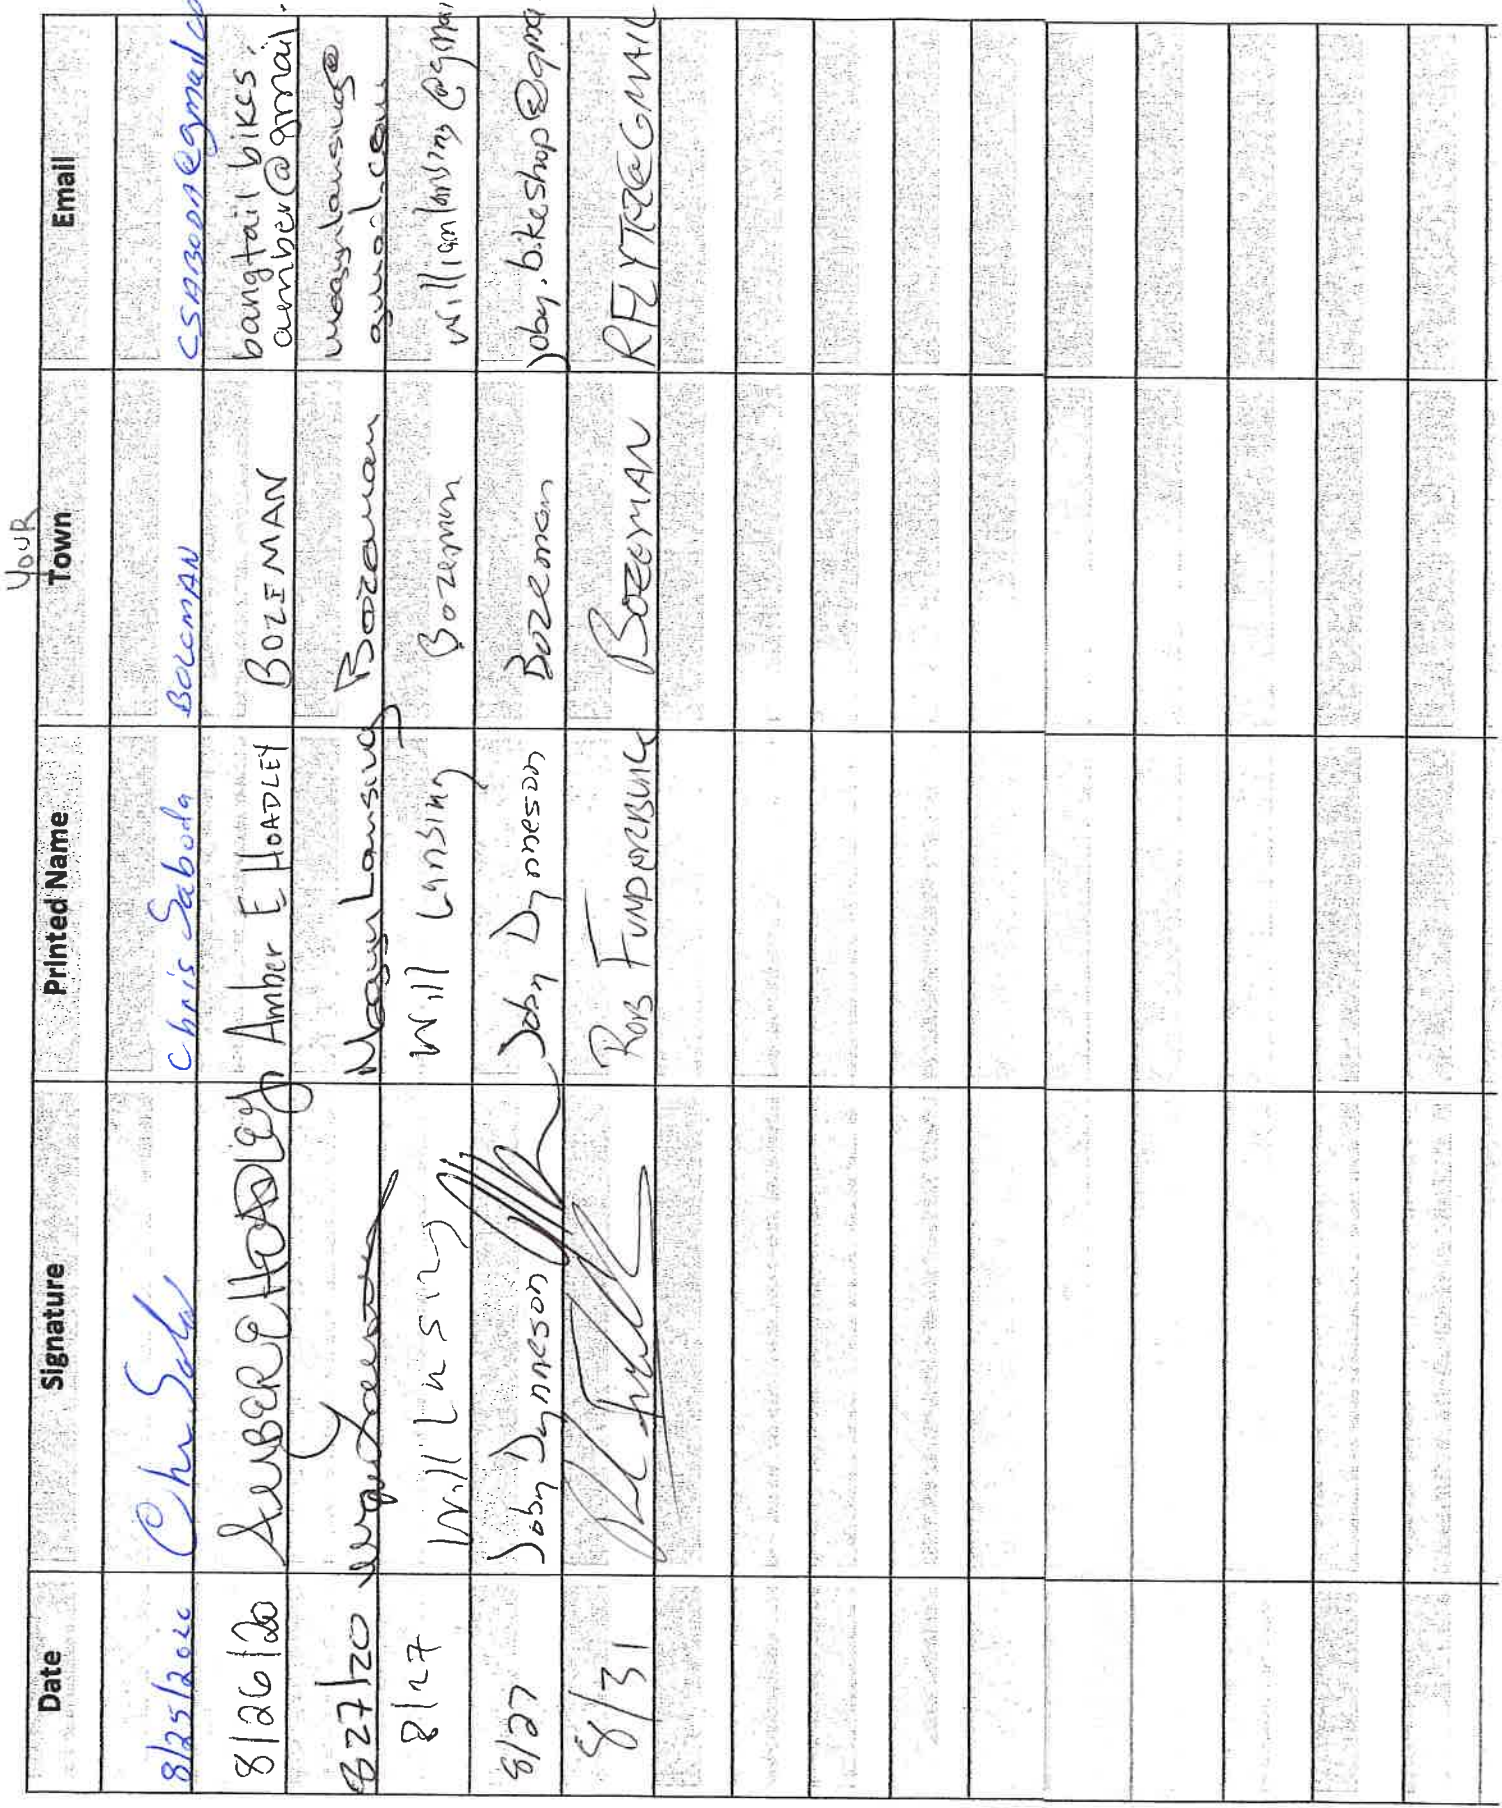 YOUR
Date Signature Printed Name Town Email
8/25/2020 Chris Saboda BOZEMAN CSABODA@gmail.co
8/26/20 AMBER E HOADLEY Amber E HOADLEY BOZEMAN bangtail bikes.
amber@gmail.
827/20 Lansing Bozeman
gmail.com
8/27 Will Lnsing Will Lansing Bozeman willianlansing@gmai
8/27 Joby Dynneson Joby Dynneson Bozeman joby.bikeshop@gma
8/31 ROB FUNDERBURK BOZEMAN RFLYTRZ@GMAIL